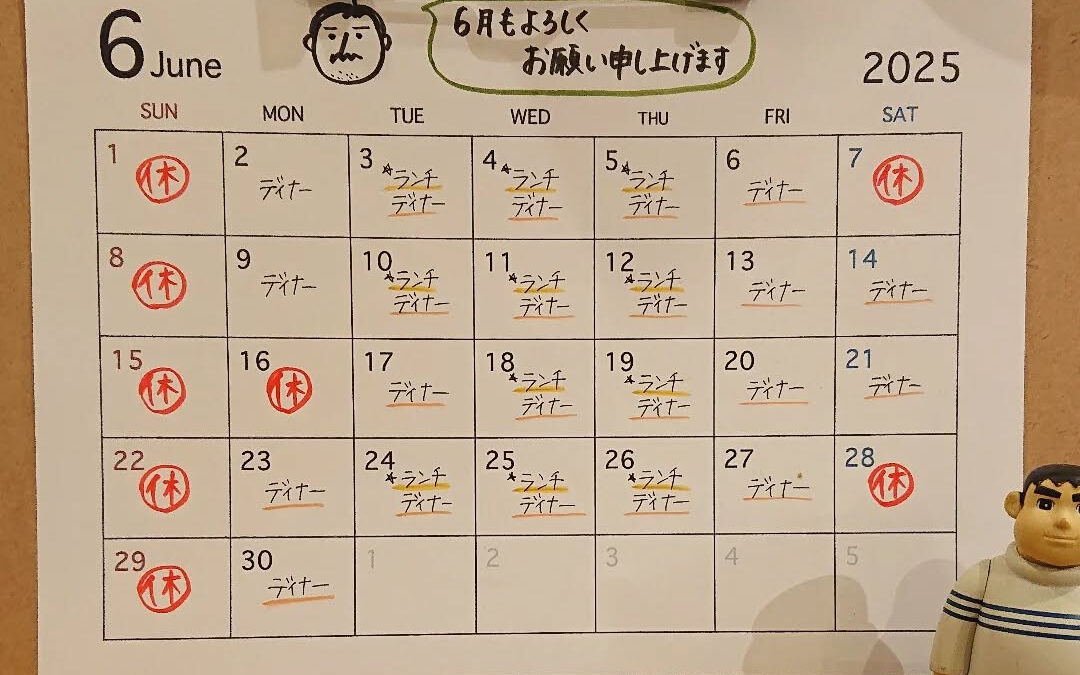 6 June
6月もよろしく
お願い申し上げます
2025
SUN MON TUE WED THU FRI SAT
1 2 3 4 5 6 7
休 ディナー *ランチ *ランチ *ランチ ディナー 休
ディナー ディナー ディナー
8 9 10 11 12 13 14
休 ディナー *ランチ *ランチ *ランチ ディナー ディナー
ディナー ディナー ディナー
15 16 17 18 19 20 21
休 休 ディナー *ランチ *ランチ ディナー ディナー
ディナー ディナー
22 23 24 25 26 27 28
休 ディナー *ランチ *ランチ *ランチ ディナー 休
ディナー ディナー ディナー
29 30 1 2 3 4 5
休 ディナー